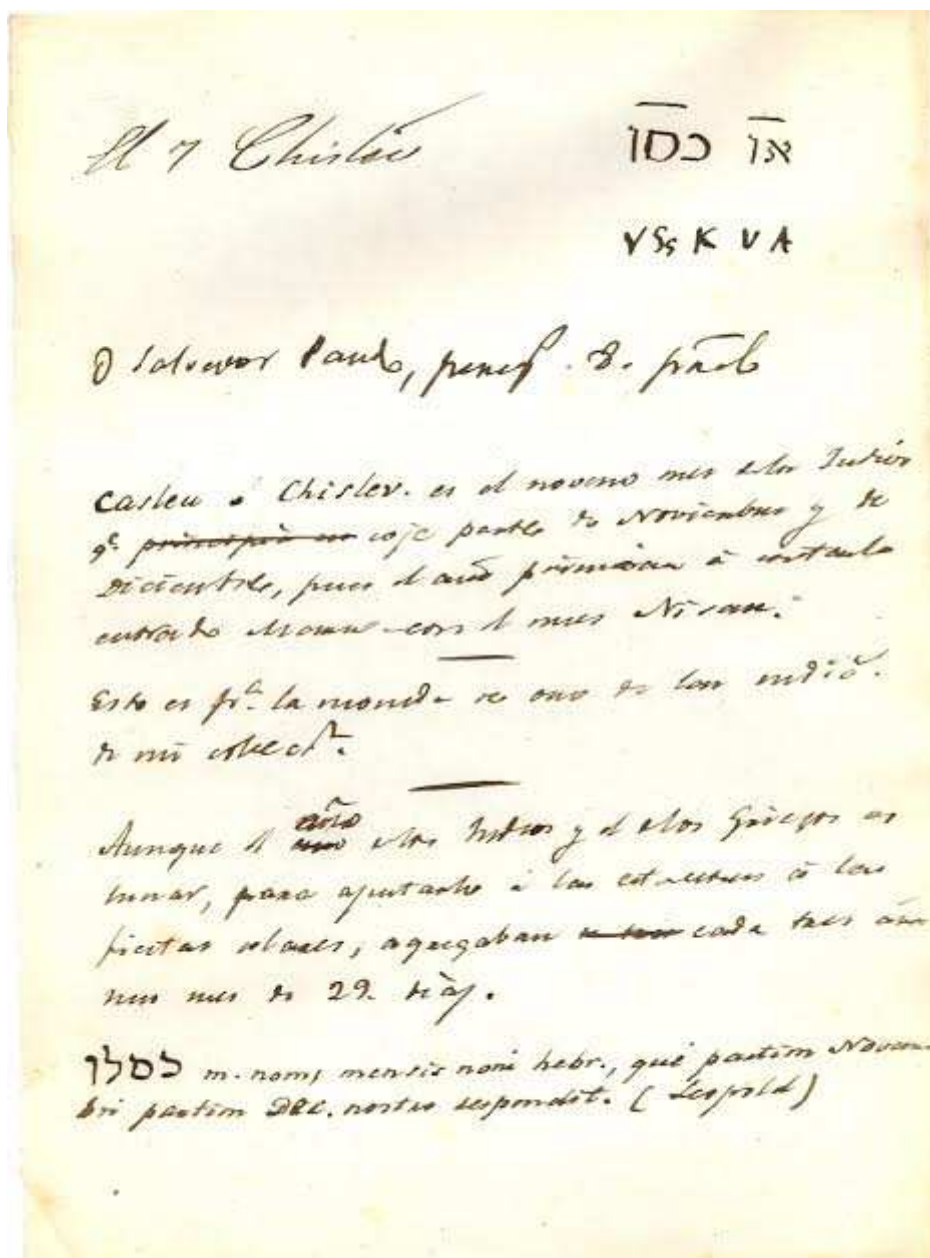 El 7 Chisleu
כסו או
V Ss K V A
D Salvador
Casleu ó Chislev. es el noveno mes de los Judios
q.e principia en coje parte de Noviembre y de
Diciembre, pues el año à contarlo
con el mes Nisan.
Esto es p.a la moneda de oro de los
de mi colec.n.
Aunque el año de los Judios y el de los Griegos es
lunar, para ajustarlo á las estaciones ó las
fiestas solares, agregaban cada tres
un mes de 29. dias.
כסלו m. nom, mensis noni hebr., qui partim Novem
bri partim Dec. nostro respondet. (Leopold)